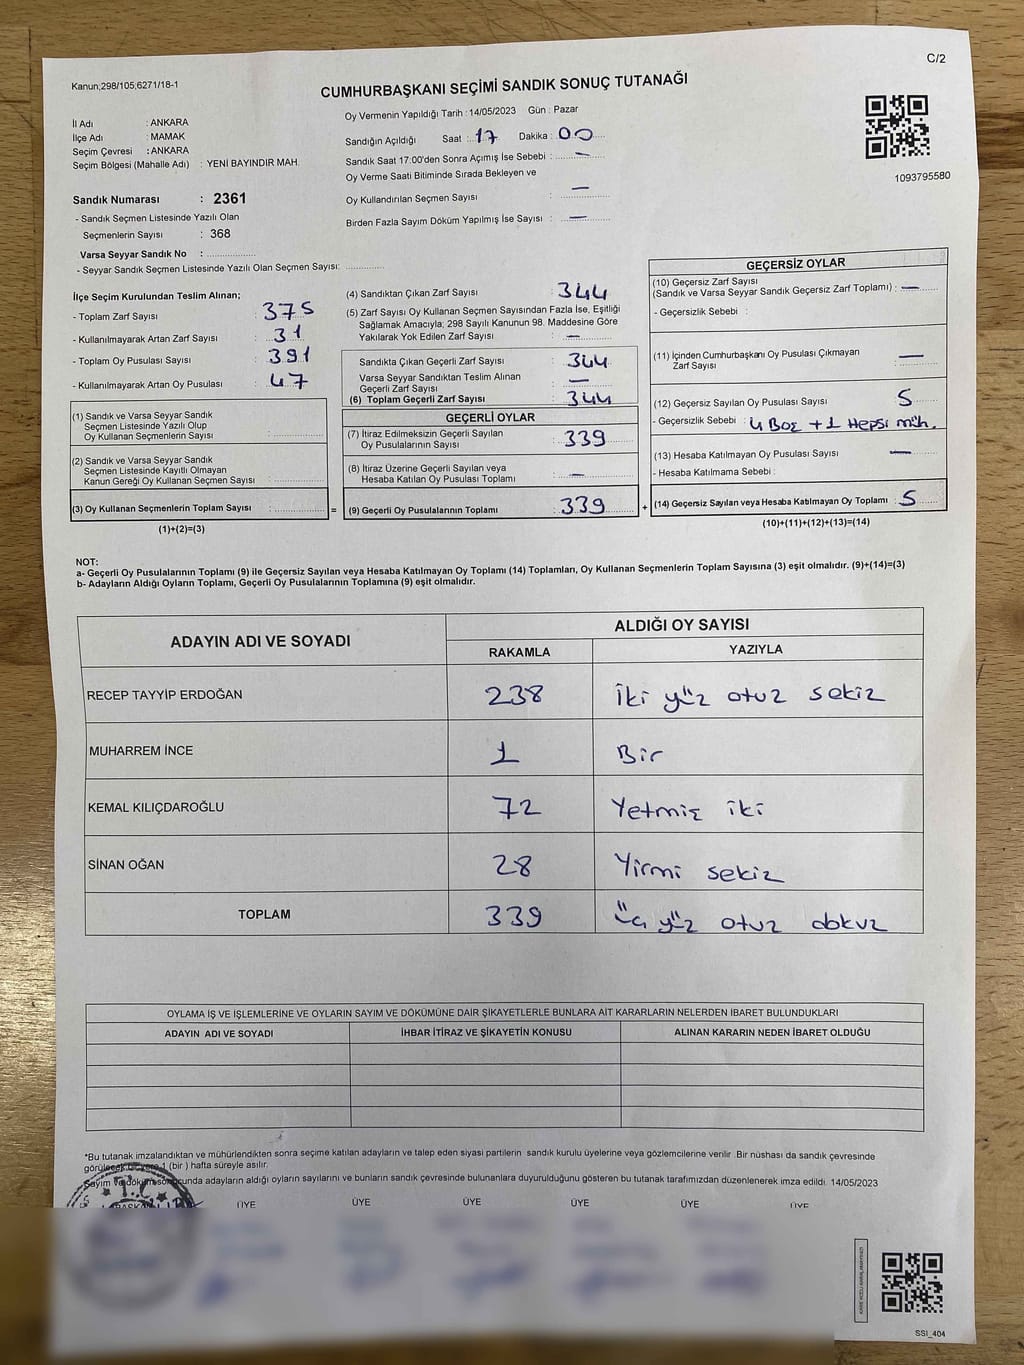 C/2
Kanun;298/105;6271/18-1
CUMHURBAŞKANI SEÇİMİ SANDIK SONUÇ TUTANAĞI
Oy Vermenin Yapıldığı Tarih : 14/05/2023 Gün : Pazar
İl Adı : ANKARA
İlçe Adı : MAMAK
Seçim Çevresi : ANKARA
Seçim Bölgesi (Mahalle Adı) : YENİ BAYINDIR MAH.
Sandığın Açıldığı Saat : 17 Dakika : 00
Sandık Saat 17:00'den Sonra Açımış İse Sebebi : —
Oy Verme Saati Bitiminde Sırada Bekleyen ve
Oy Kullandırılan Seçmen Sayısı : —
Birden Fazla Sayım Döküm Yapılmış İse Sayısı : —
1093795580
Sandık Numarası : 2361
- Sandık Seçmen Listesinde Yazılı Olan
Seçmenlerin Sayısı : 368
Varsa Seyyar Sandık No :
- Seyyar Sandık Seçmen Listesinde Yazılı Olan Seçmen Sayısı:
İlçe Seçim Kurulundan Teslim Alınan;
- Toplam Zarf Sayısı : 375
- Kullanılmayarak Artan Zarf Sayısı : 31
- Toplam Oy Pusulası Sayısı : 391
- Kullanılmayarak Artan Oy Pusulası : 47
(1) Sandık ve Varsa Seyyar Sandık
Seçmen Listesinde Yazılı Olup
Oy Kullanan Seçmenlerin Sayısı :
(2) Sandık ve Varsa Seyyar Sandık
Seçmen Listesinde Kayıtlı Olmayan
Kanun Gereği Oy Kullanan Seçmen Sayısı :
(3) Oy Kullanan Seçmenlerin Toplam Sayısı :
(1)+(2)=(3)
=
(4) Sandıktan Çıkan Zarf Sayısı : 344
(5) Zarf Sayısı Oy Kullanan Seçmen Sayısından Fazla İse, Eşitliği
Sağlamak Amacıyla; 298 Sayılı Kanunun 98. Maddesine Göre
Yakılarak Yok Edilen Zarf Sayısı : —
Sandıkta Çıkan Geçerli Zarf Sayısı : 344
Varsa Seyyar Sandıktan Teslim Alınan
Geçerli Zarf Sayısı : —
(6) Toplam Geçerli Zarf Sayısı : 344
GEÇERLİ OYLAR
(7) İtiraz Edilmeksizin Geçerli Sayılan
Oy Pusulalarının Sayısı : 339
(8) İtiraz Üzerine Geçerli Sayılan veya
Hesaba Katılan Oy Pusulası Toplamı : —
(9) Geçerli Oy Pusulalarının Toplamı : 339
+
GEÇERSİZ OYLAR
(10) Geçersiz Zarf Sayısı
(Sandık ve Varsa Seyyar Sandık Geçersiz Zarf Toplamı) : —
- Geçersizlik Sebebi :
(11) İçinden Cumhurbaşkanı Oy Pusulası Çıkmayan
Zarf Sayısı : —
(12) Geçersiz Sayılan Oy Pusulası Sayısı : 5
- Geçersizlik Sebebi : 4 Boş + 1 Hepsi müh.
(13) Hesaba Katılmayan Oy Pusulası Sayısı : —
- Hesaba Katılmama Sebebi :
(14) Geçersiz Sayılan veya Hesaba Katılmayan Oy Toplamı : 5
(10)+(11)+(12)+(13)=(14)
NOT:
a- Geçerli Oy Pusulalarının Toplamı (9) ile Geçersiz Sayılan veya Hesaba Katılmayan Oy Toplamı (14) Toplamları, Oy Kullanan Seçmenlerin Toplam Sayısına (3) eşit olmalıdır. (9)+(14)=(3)
b- Adayların Aldığı Oyların Toplamı, Geçerli Oy Pusulalarının Toplamına (9) eşit olmalıdır.
ADAYIN ADI VE SOYADI ALDIĞI OY SAYISI
RAKAMLA YAZIYLA
RECEP TAYYİP ERDOĞAN 238 İki yüz otuz sekiz
MUHARREM İNCE 1 Bir
KEMAL KILIÇDAROĞLU 72 Yetmiş iki
SİNAN OĞAN 28 Yirmi sekiz
TOPLAM 339 üç yüz otuz dokuz
OYLAMA İŞ VE İŞLEMLERİNE VE OYLARIN SAYIM VE DÖKÜMÜNE DAİR ŞİKAYETLERLE BUNLARA AİT KARARLARIN NELERDEN İBARET BULUNDUKLARI
ADAYIN ADI VE SOYADI İHBAR İTİRAZ VE ŞİKAYETİN KONUSU ALINAN KARARIN NEDEN İBARET OLDUĞU
*Bu tutanak imzalandıktan ve mühürlendikten sonra seçime katılan adayların ve talep eden siyasi partilerin sandık kurulu üyelerine veya gözlemcilerine verilir .Bir nüshası da sandık çevresinde
görülecek bir yere 1 (bir ) hafta süreyle asılır.
Sayım ve döküm sonucunda adayların aldığı oyların sayılarını ve bunların sandık çevresinde bulunanlara duyurulduğunu gösteren bu tutanak tarafımızdan düzenlenerek imza edildi. 14/05/2023
T.C.
BAŞKAN ÜYE ÜYE ÜYE ÜYE ÜYE ÜYE
SSI_404